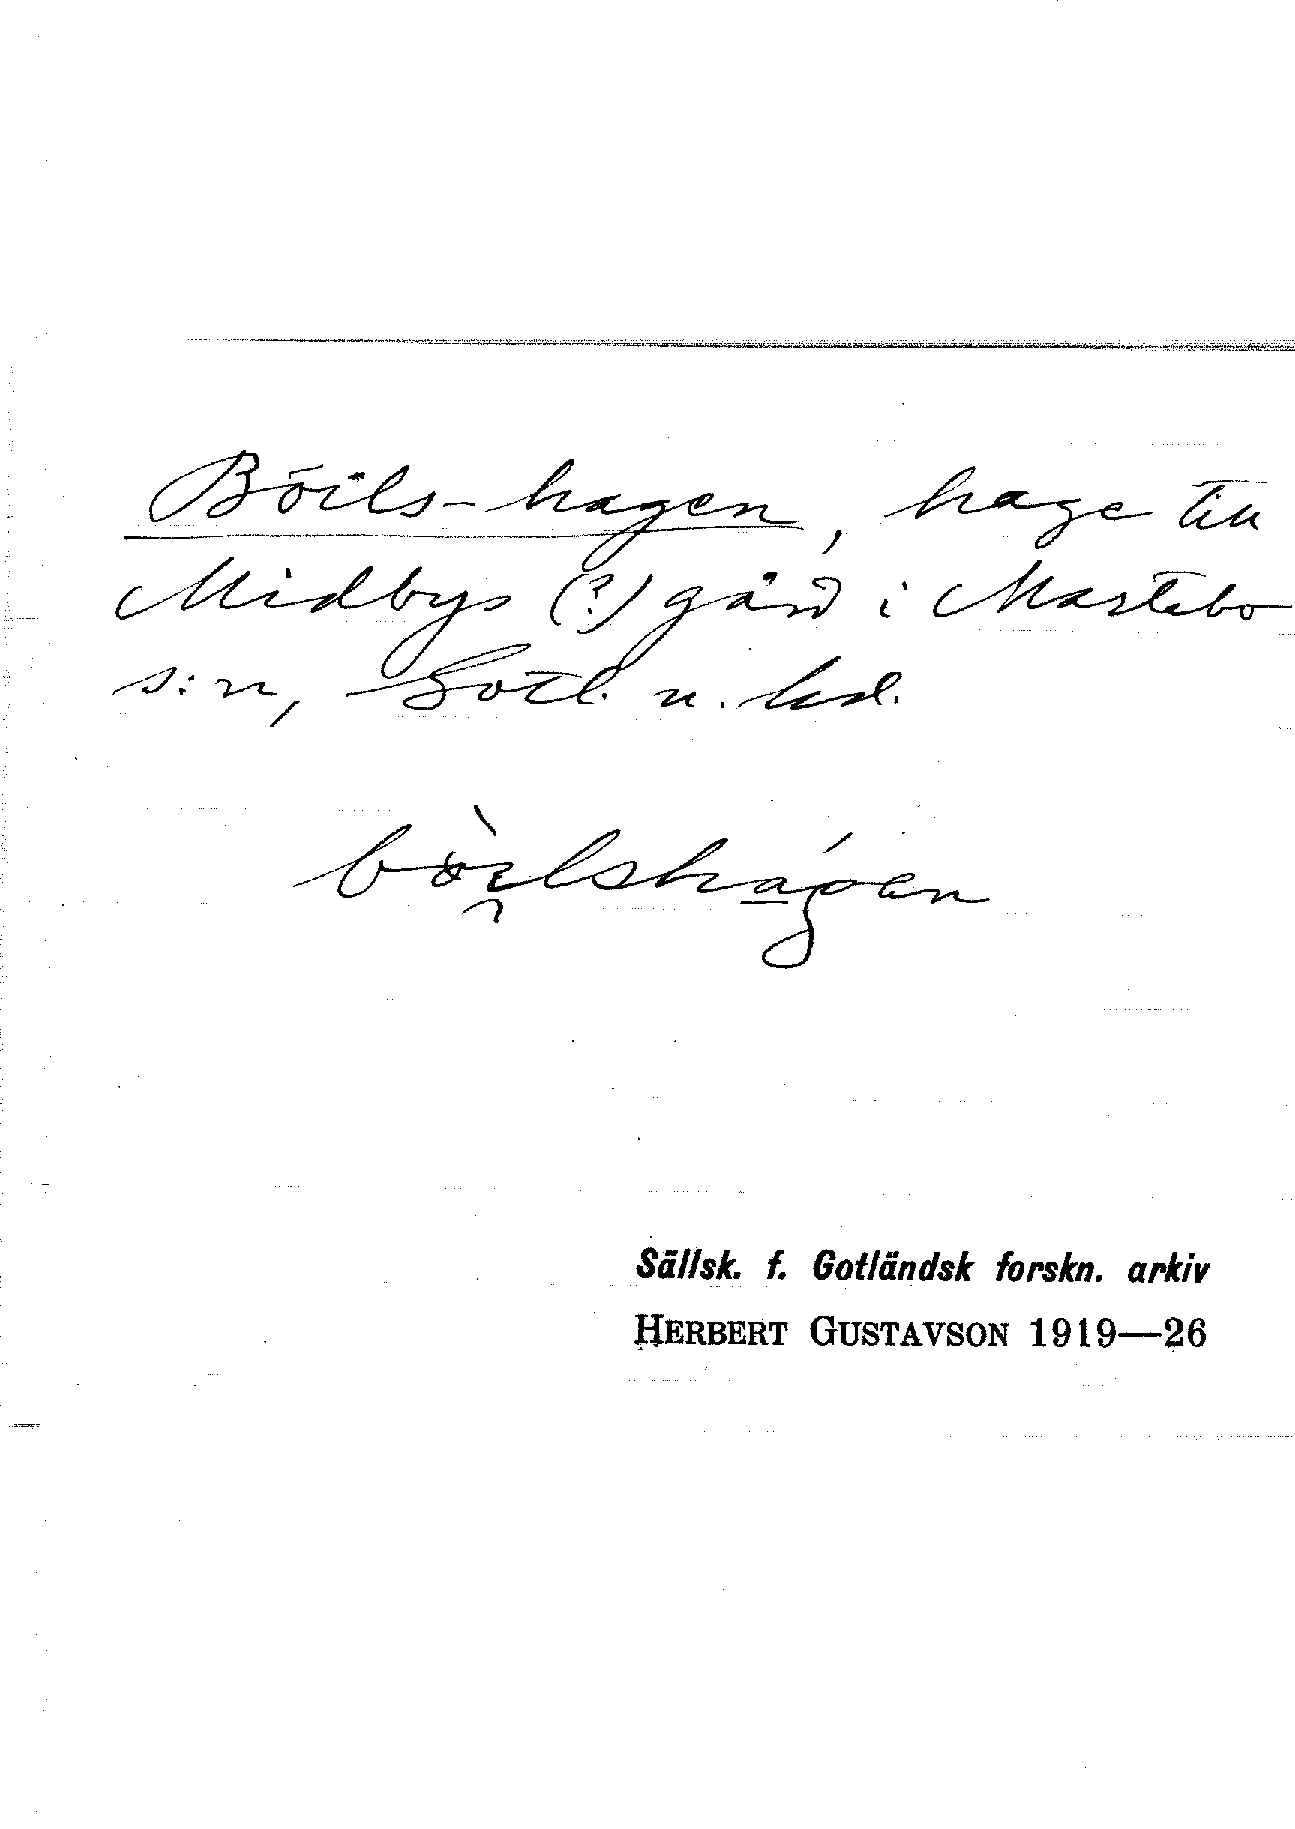 Böils-hagen, hage till
Midbys (?) gård i Martebo
s:n, Gotl. n. hd.
bòi̯lshágen
Sällsk. f. Gotländsk forskn. arkiv
HERBERT GUSTAVSON 1919—26